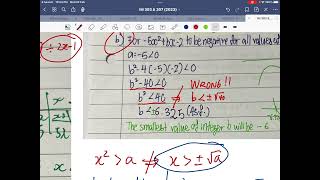 SM 3003 & 307 (2023)
÷ 2x-1
b) For -5x²+bx-2 to be negative for all values of
a=-5<0
b²-4(-5)(-2)<0
b²-40<0
b²<40 ⇒ b<±√40
WRONG!!
b<±6.325 (4s.f.)
The smallest value of integer b will be -6
x² > a ⇏ x > ±√a